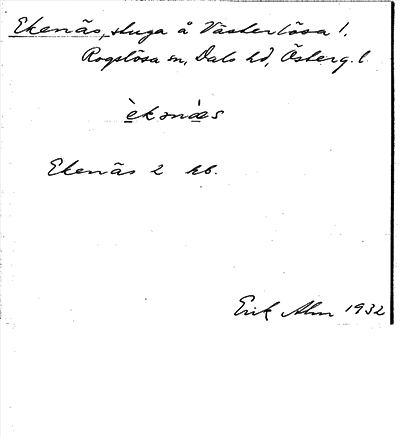 Ekenäs, stuga å Västerlösa 1,
Rogslösa sn, Dals hd, Österg. l.
èkənæ̀s
Ekenäs 2 kb.
Erik Alm 1932